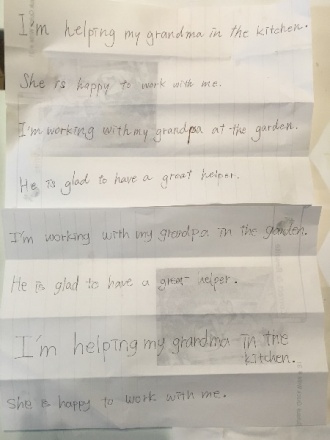 I'm helping my grandma in the kitchen.
She is happy to work with me.
I'm working with my grandpa at the garden.
He is glad to have a great helper.
I'm working with my grandpa in the garden.
He is glad to have a great helper.
I'm helping my grandma in the
kitchen.
She is happy to work with me.